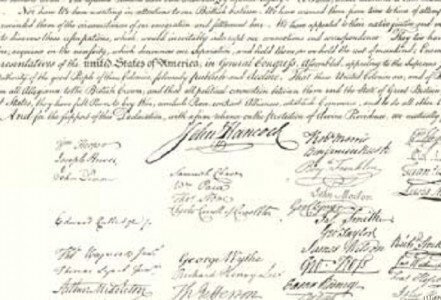 Nor have We been wanting in attentions to our British brethren. We have warned them from time to time of attempts
them of the circumstances of our emigration and settlement here. We have appealed to their native justice and
to disavow these usurpations, which would inevitably interrupt our connections and correspondence. They too have
acquiesce in the necessity, which denounces our Separation, and hold them, as we hold the rest of mankind, Enemies
Representatives of the united States of America, in General Congress, Assembled, appealing to the Supreme
Authority of the good People of these Colonies, solemnly publish and declare, That these United Colonies are, and of
from all Allegiance to the British Crown, and that all political connection between them and the State of Great Britain
States, they have full Power to levy War, conclude Peace, contract Alliances, establish Commerce, and to do all other
And for the support of this Declaration, with a firm reliance on the protection of divine Providence, we mutually
John Hancock
Wm Hooper
Joseph Hewes
John Penn
Edward Rutledge
Arthur Middleton
Samuel Chase
Wm Paca
Thos Stone
Charles Carroll of Carrollton
George Wythe
Richard Henry Lee
Th Jefferson
Robt Morris
Benjamin Rush
Benj Franklin
John Morton
Geo Clymer
Jas Smith
Geo Taylor
James Wilson
Geo Ross